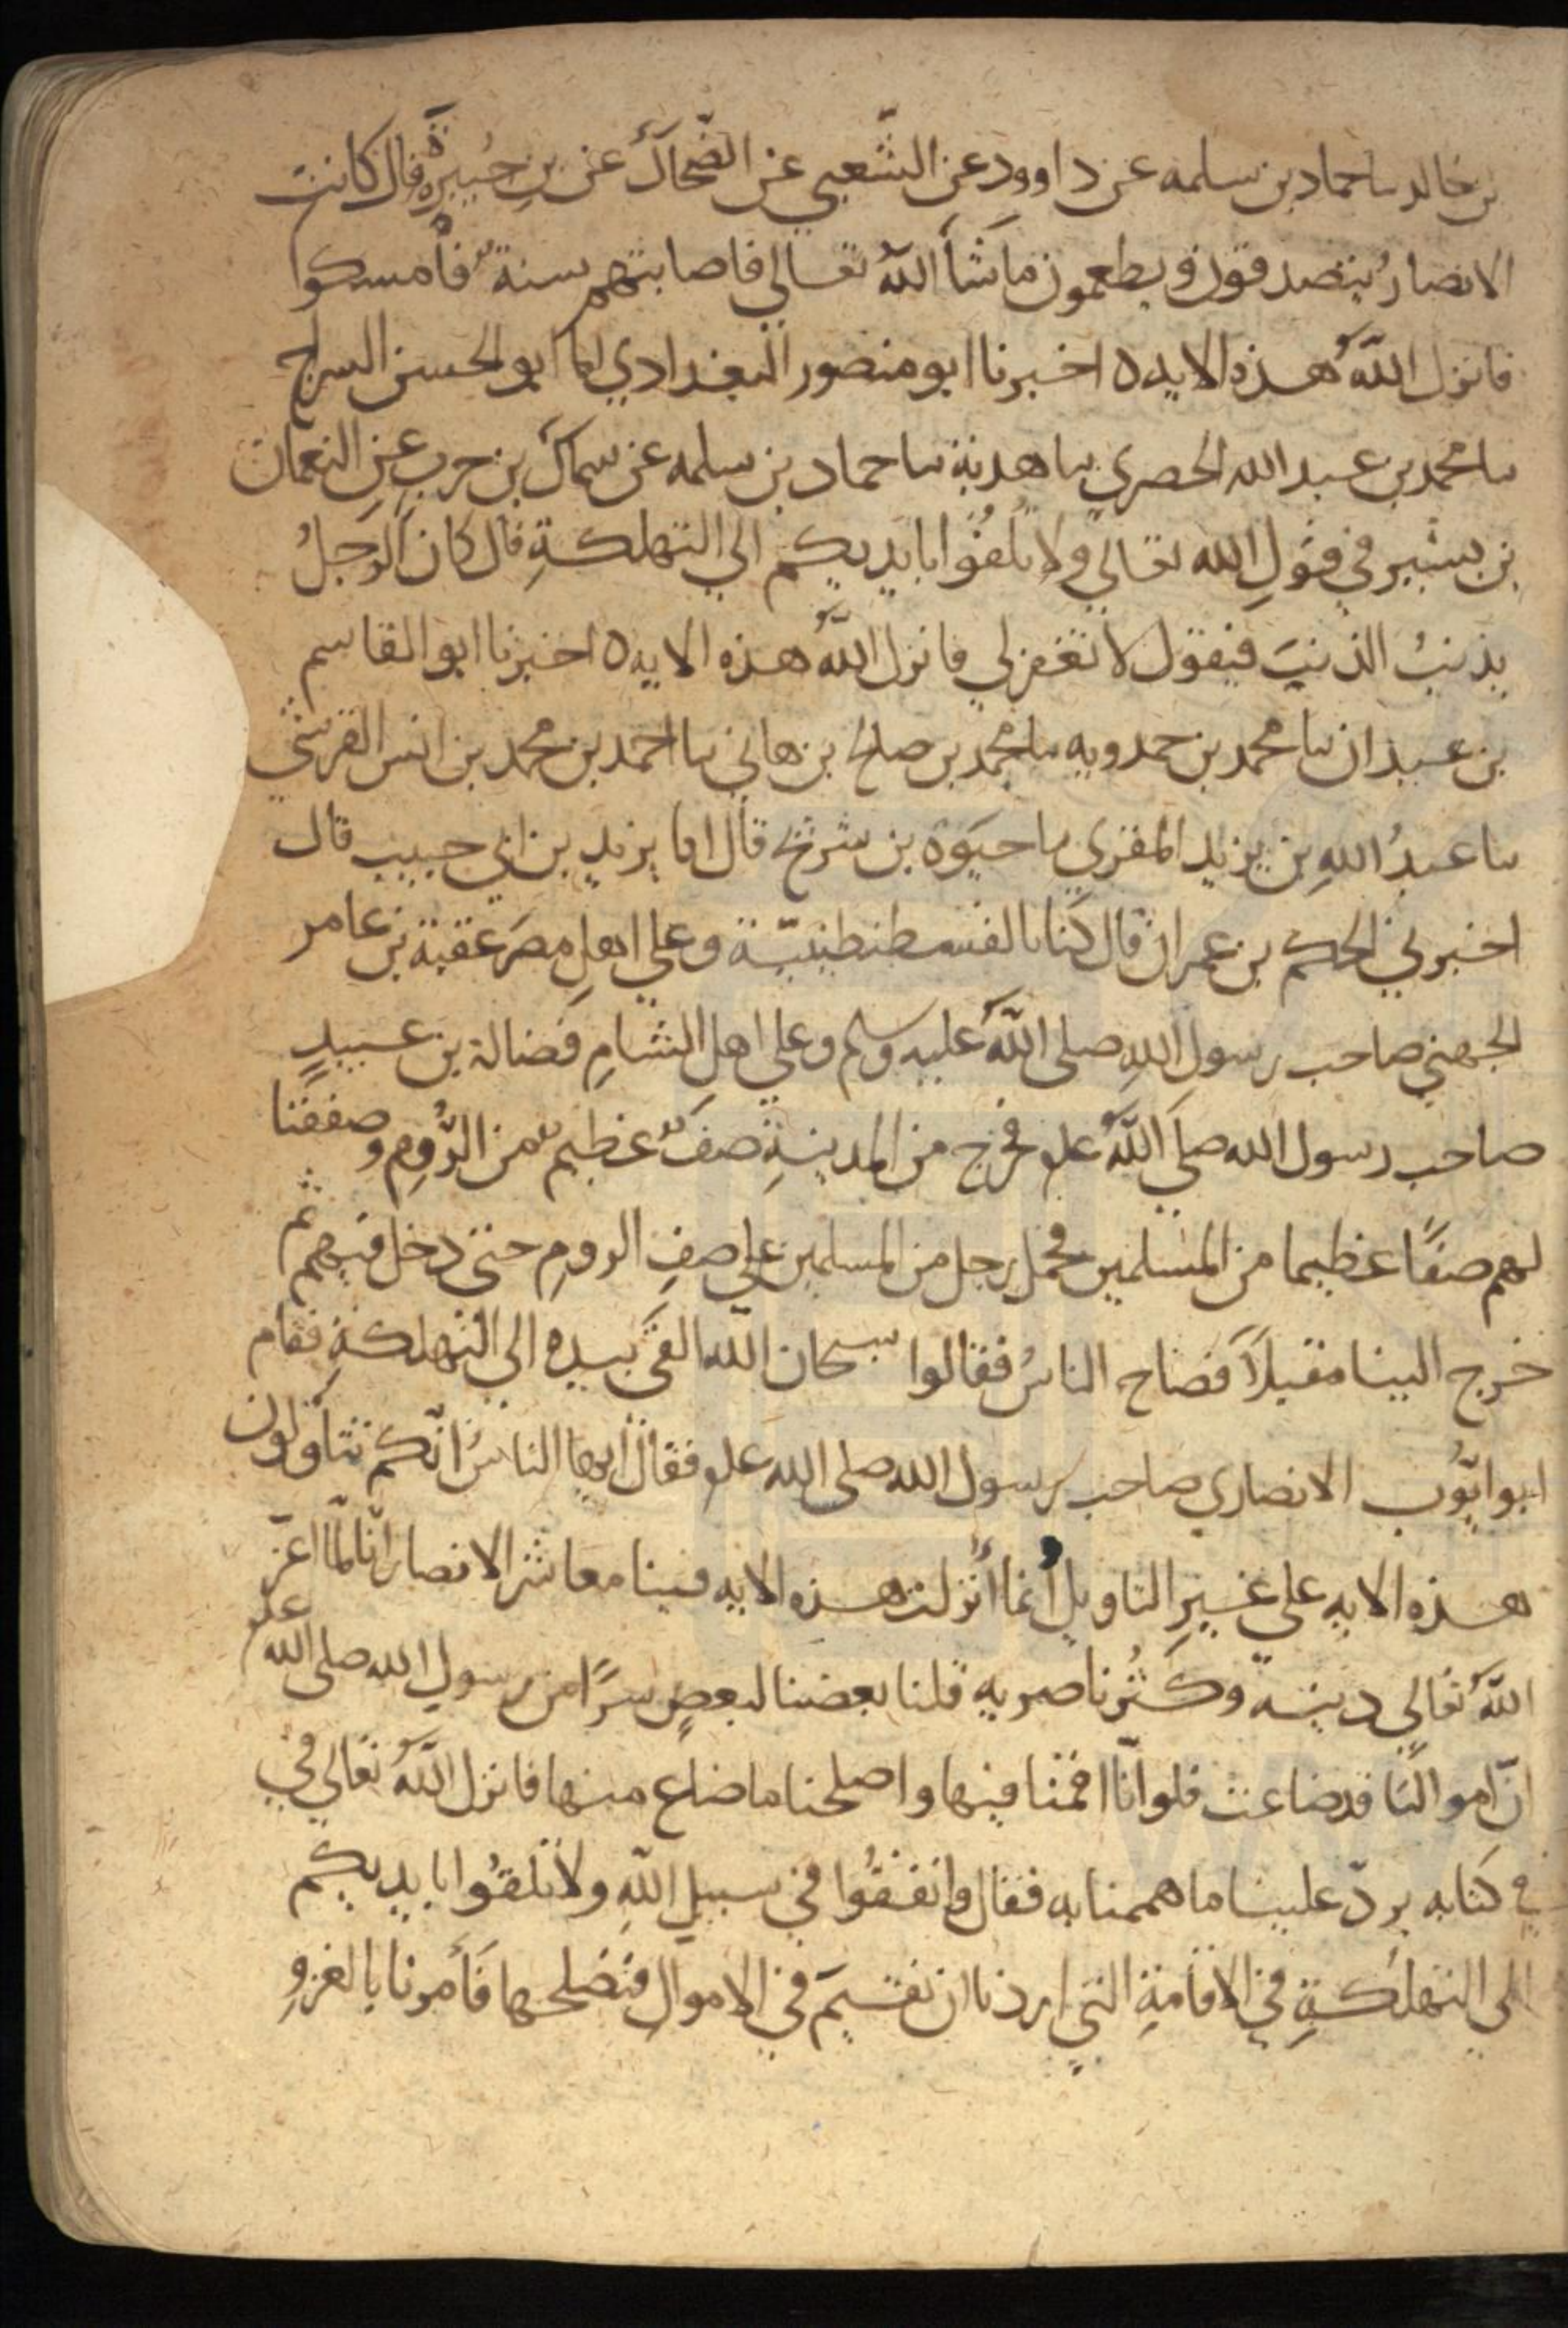 بن خالد ىا حماد بن سلمه عن داوود عن الشّعبي عن الضّحاكُ عن بنِ جُبيرة قال كانت
الانصارُ يتصدقون ويطعمون ما شأ اللهُ تعالي فاصابتهم سنةٌ فأمسكوا
فانزل اللهُ هذه الايه ٥ اخبرنا ابو منصور البغدادي انا ابو الحسن السراج
ىا محمد بن عبد الله الحصري ىا هدبة ىا حماد بن سلمه عن سماك بن حربٍ عنِ النعمان
بن بشير في قولِ الله تعالي ولا تُلقُوا بايديكم الي التهلكةِ قال كان الرجلُ
يذنبُ الذنبَ فيقول لا تغفر لي فانزل اللهُ هذه الايه ٥ اخبرنا ابو القاسم
بن عبدان ىا محمد بن حمدويه ىا محمد بن صلح بن هاني ىا احمد بن محمد بن انس القرشي
ىا عبدُ اللهِ بن يزيد المقري ىا حيَوة بن شريح قال انا يزيد بن ابي حبيب قال
اخبرني الحكم بن عمران قال كنا بالقسطنطينيّة وعلي اهلِ مصرَ عقبة بن عامر
الجهني صاحب رسول اللهِ صلى اللهُ عليه وسلم وعلي اهلِ الشامِ فضالة بن عبيدٍ
صاحب رسول الله صلي اللهُ علم فخرج من المدينةِ صفٌ عظيمٌ من الرُّومِ وصففنا
لهم صفًا عظيما من المسلمين فحمل رجل من المسلمين علي صفِ الرومِ حتي دخل فيهم ثم
خرج الينا مقبلاً فصاح الناسُ فقالوا سبحان الله القَي بيده الي التهلكةِ فقام
ابو ايّوب الانصاري صاحب رسول الله صلى الله علم فقال ايها الناسُ انّكم تتأولون
هذه الايه على غيرِ التاويل انما أنزلت هذه الايه فينا معاشر الانصار انّا لمّا اعزّ
اللهُ تعالي دينه وكثُر ناصريه قلنا بعضنا لبعضٍ سرًا من رسولِ الله صلى الله علم
انّ اموالنَا قد ضاعت فلو انّا اقمنا فيها واصلحنا ما ضاع منها فانزل اللهُ تعالي في
في كتابه يردّ علينا ما هممنا به فقال وانفقُوا في سبيلِ اللهِ ولا تلقُوا بايديكم
الي التهلكةِ في الاقامةِ التي اردنا ان نقيمَ في الاموالِ فنصلحها فَأمرنا بالغزوِ